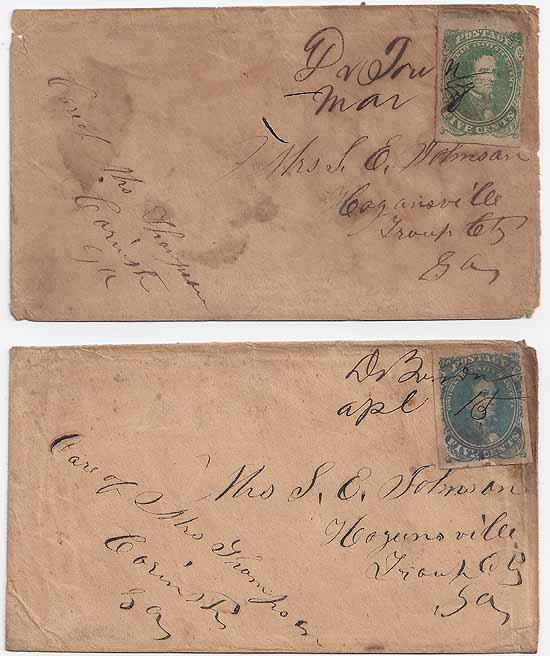 Dr Town
Mar
POSTAGE
FIVE CENTS
Mrs S. E. Johnson
Hogansville
Troup Cty
Ga
Care of Mrs Thompson
Corinth
Ga
apl 15
POSTAGE
FIVE CENTS
Mrs S. E. Johnson
Hogansville
Troup Cty
Ga
Care of Mrs Thompson
Corinth
Ga